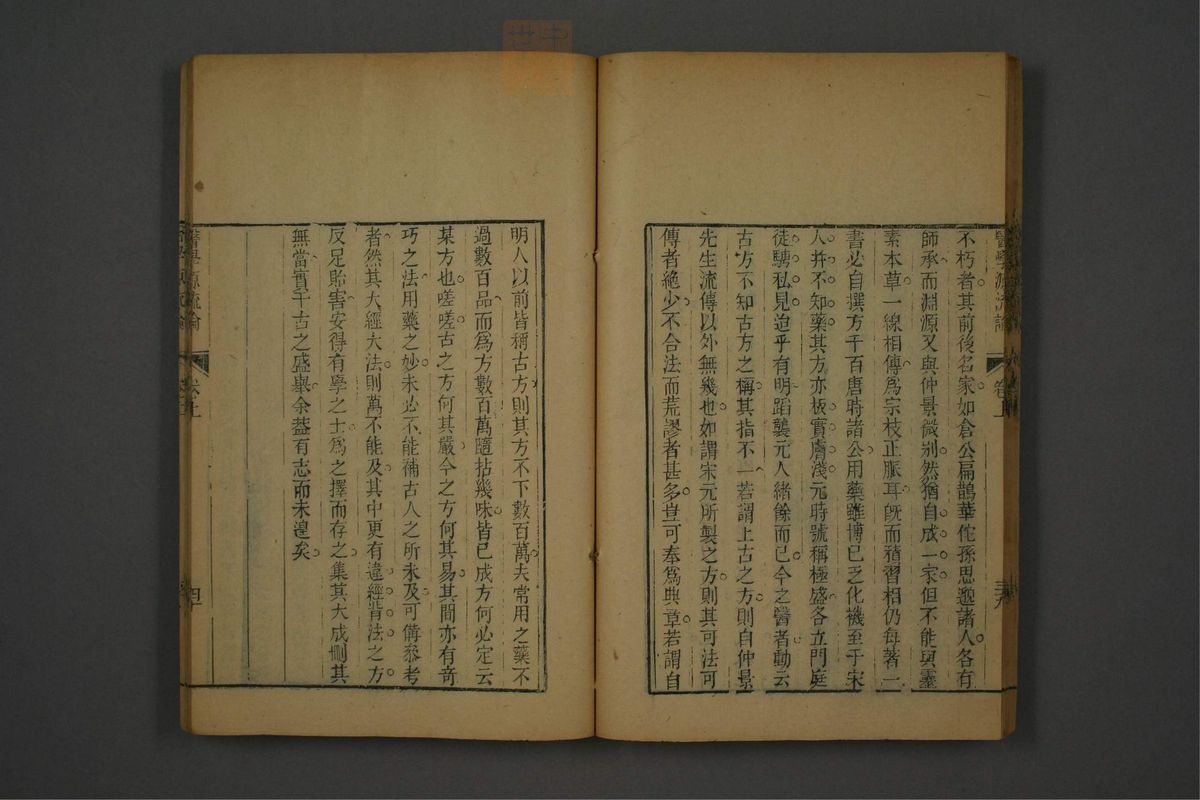 不朽者其前後名家如倉公扁鵲華佗孫思邈諸人各有
師承而淵源又與仲景微别然猶自成一家但不能與靈
素本草一線相傳爲宗枝正脈耳旣而積習相仍每著一
書必自撰方千百唐時諸公用藥雖博已乏化機至于宋
人并不知藥其方亦板實膚淺元時號稱極盛各立門庭
徒騁私見迨乎有明蹈襲元人緒餘而已今之醫者動云
古方不知古方之稱其指不一若謂上古之方則自仲景
先生流傳以外無幾也如謂宋元所製之方則其可法可
傳者絶少不合法而荒謬者甚多豈可奉爲典章若謂自
明人以前皆稱古方則其方不下數百萬夫常用之藥不
過數百品而爲方數百萬隨拈幾味皆已成方何必定云
某方也嗟嗟古之方何其嚴今之方何其易其間亦有奇
巧之法用藥之妙未必不能補古人之所未及可備參考
者然其大經大法則萬不能及其中更有違經背法之方
反足貽害安得有學之士爲之擇而存之集其大成刪其
無當實千古之盛舉余葢有志而未遑矣
醫學源流論
卷上